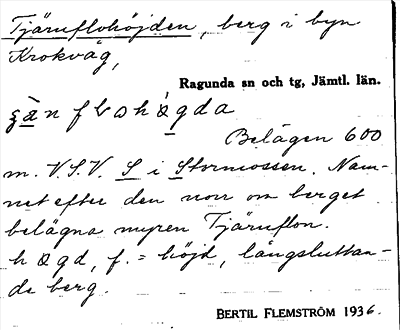 Tjärnflohöjden, berg i byn
Krokvåg,
Ragunda sn och tg, Jämtl. län.
Belägen 600
m. V.S.V. S i Stormossen. Nam-
net efter den norr om berget
belägna myren Tjärnflon.
f. = höjd, långsluttan-
de berg.
BERTIL FLEMSTRÖM 1936.